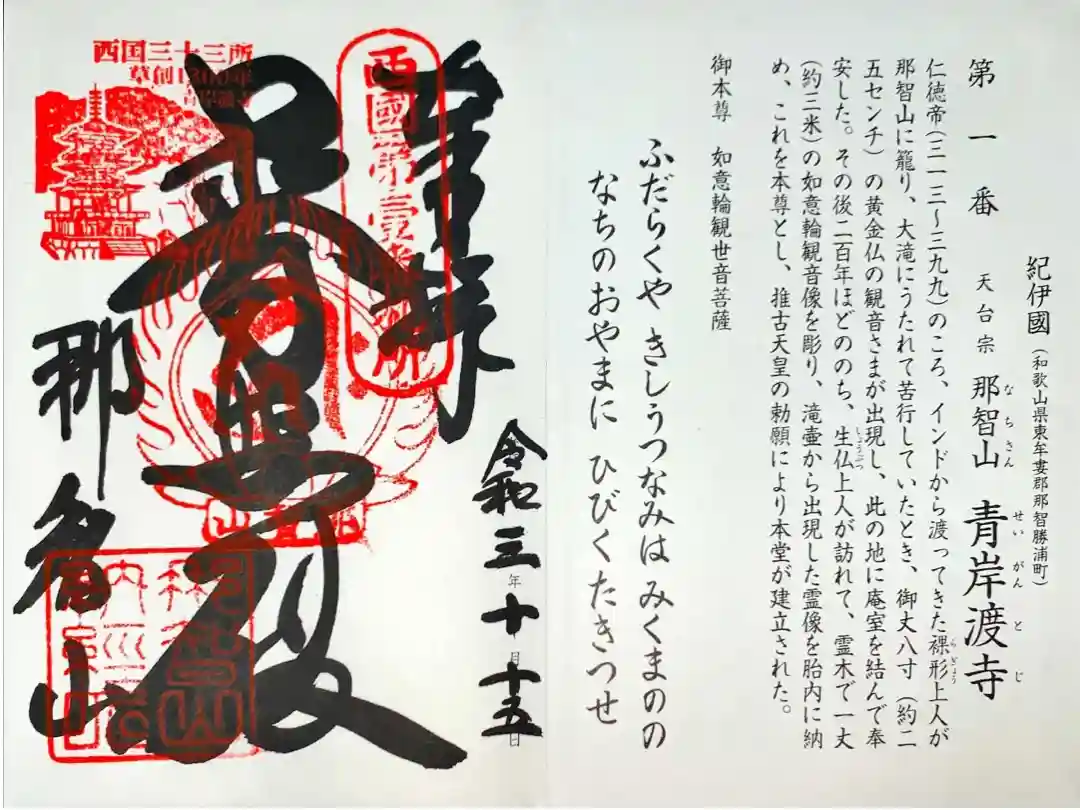 紀伊國(和歌山県東牟婁郡那智勝浦町)
第一番 天台宗 那智山 青岸渡寺
なちさん せいがんとじ
仁徳帝(三一三〜三九九)のころ、インドから渡ってきた裸形上人が
らぎょう
那智山に籠り、大滝にうたれて苦行していたとき、御丈八寸(約二
五センチ)の黄金仏の観音さまが出現し、此の地に庵室を結んで奉
安した。その後二百年ほどののち、生仏上人が訪れて、霊木で一丈
しょうぶつ
(約三米)の如意輪観音像を彫り、滝壷から出現した霊像を胎内に納
め、これを本尊とし、推古天皇の勅願により本堂が建立された。
御本尊 如意輪観世音菩薩
ふだらくや きしうつなみは みくまのの
なちのおやまに ひびくたきつせ
令和三年十月十五日
奉拝
西國第壹番札所
普照殿
那智山
西国三十三所
草創1300年
青岸渡寺